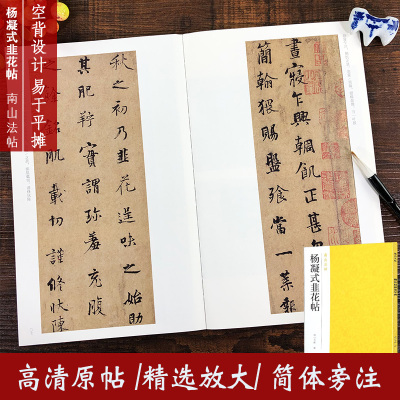 空背设计 易于平摊
杨凝式韭花帖 南山法帖
晝寢乍興輖飢正甚
簡翰猥賜盤飧當一葉報
秋之初乃韭花逞味之始助
其肥羜實謂珍羞充腹
之餘銘肌載切謹修狀陳
杨凝式韭花帖
高清原帖/精选放大/简体旁注